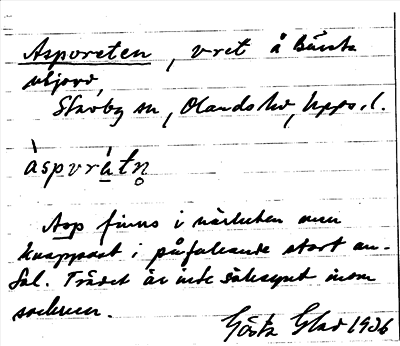 Aspvreten, vret å Bärsta
utjord,
Skäfby sn, Olands hd, Upps. l.
àspvrátn̥
Asp finns i närheten men
knappast i påfallande stort an-
tal. Trädet är inte sällsynt inom
socknen.
Gösta Glad 1936